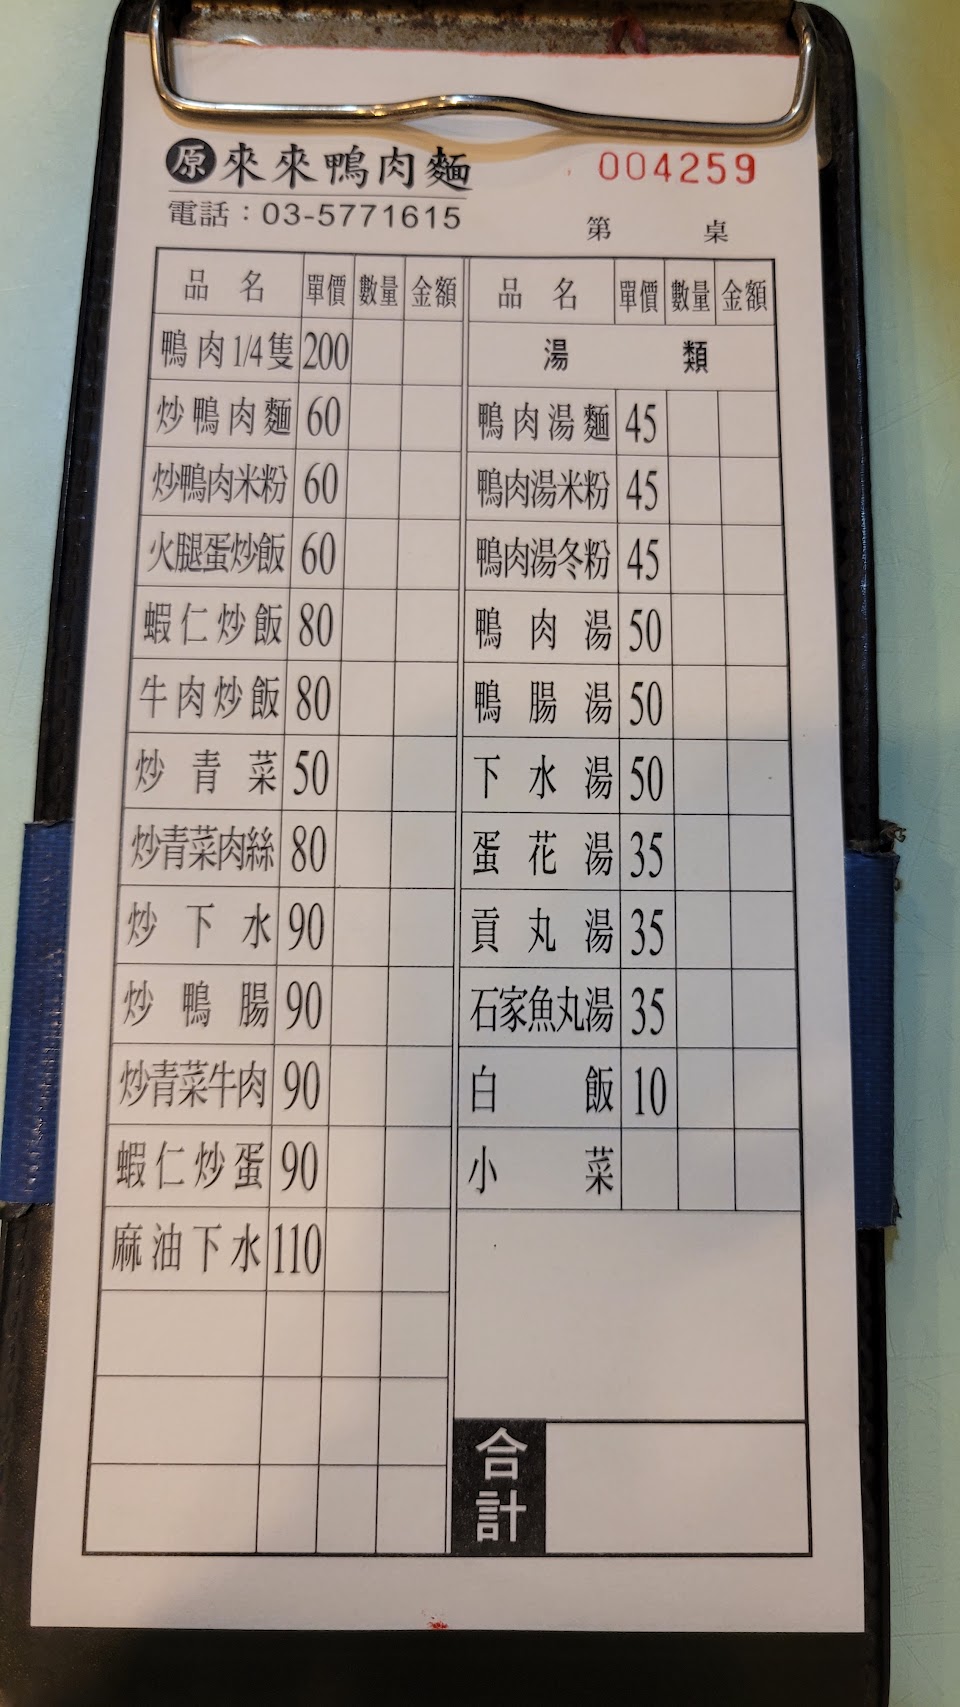 原 來來鴨肉麵
004259
電話：03-5771615
第 桌
品名 單價 數量 金額
鴨肉1/4隻 200
炒鴨肉麵 60
炒鴨肉米粉 60
火腿蛋炒飯 60
蝦仁炒飯 80
牛肉炒飯 80
炒青菜 50
炒青菜肉絲 80
炒下水 90
炒鴨腸 90
炒青菜牛肉 90
蝦仁炒蛋 90
麻油下水 110
品名 單價 數量 金額
湯類
鴨肉湯麵 45
鴨肉湯米粉 45
鴨肉湯冬粉 45
鴨肉湯 50
鴨腸湯 50
下水湯 50
蛋花湯 35
貢丸湯 35
石家魚丸湯 35
白飯 10
小菜
合計